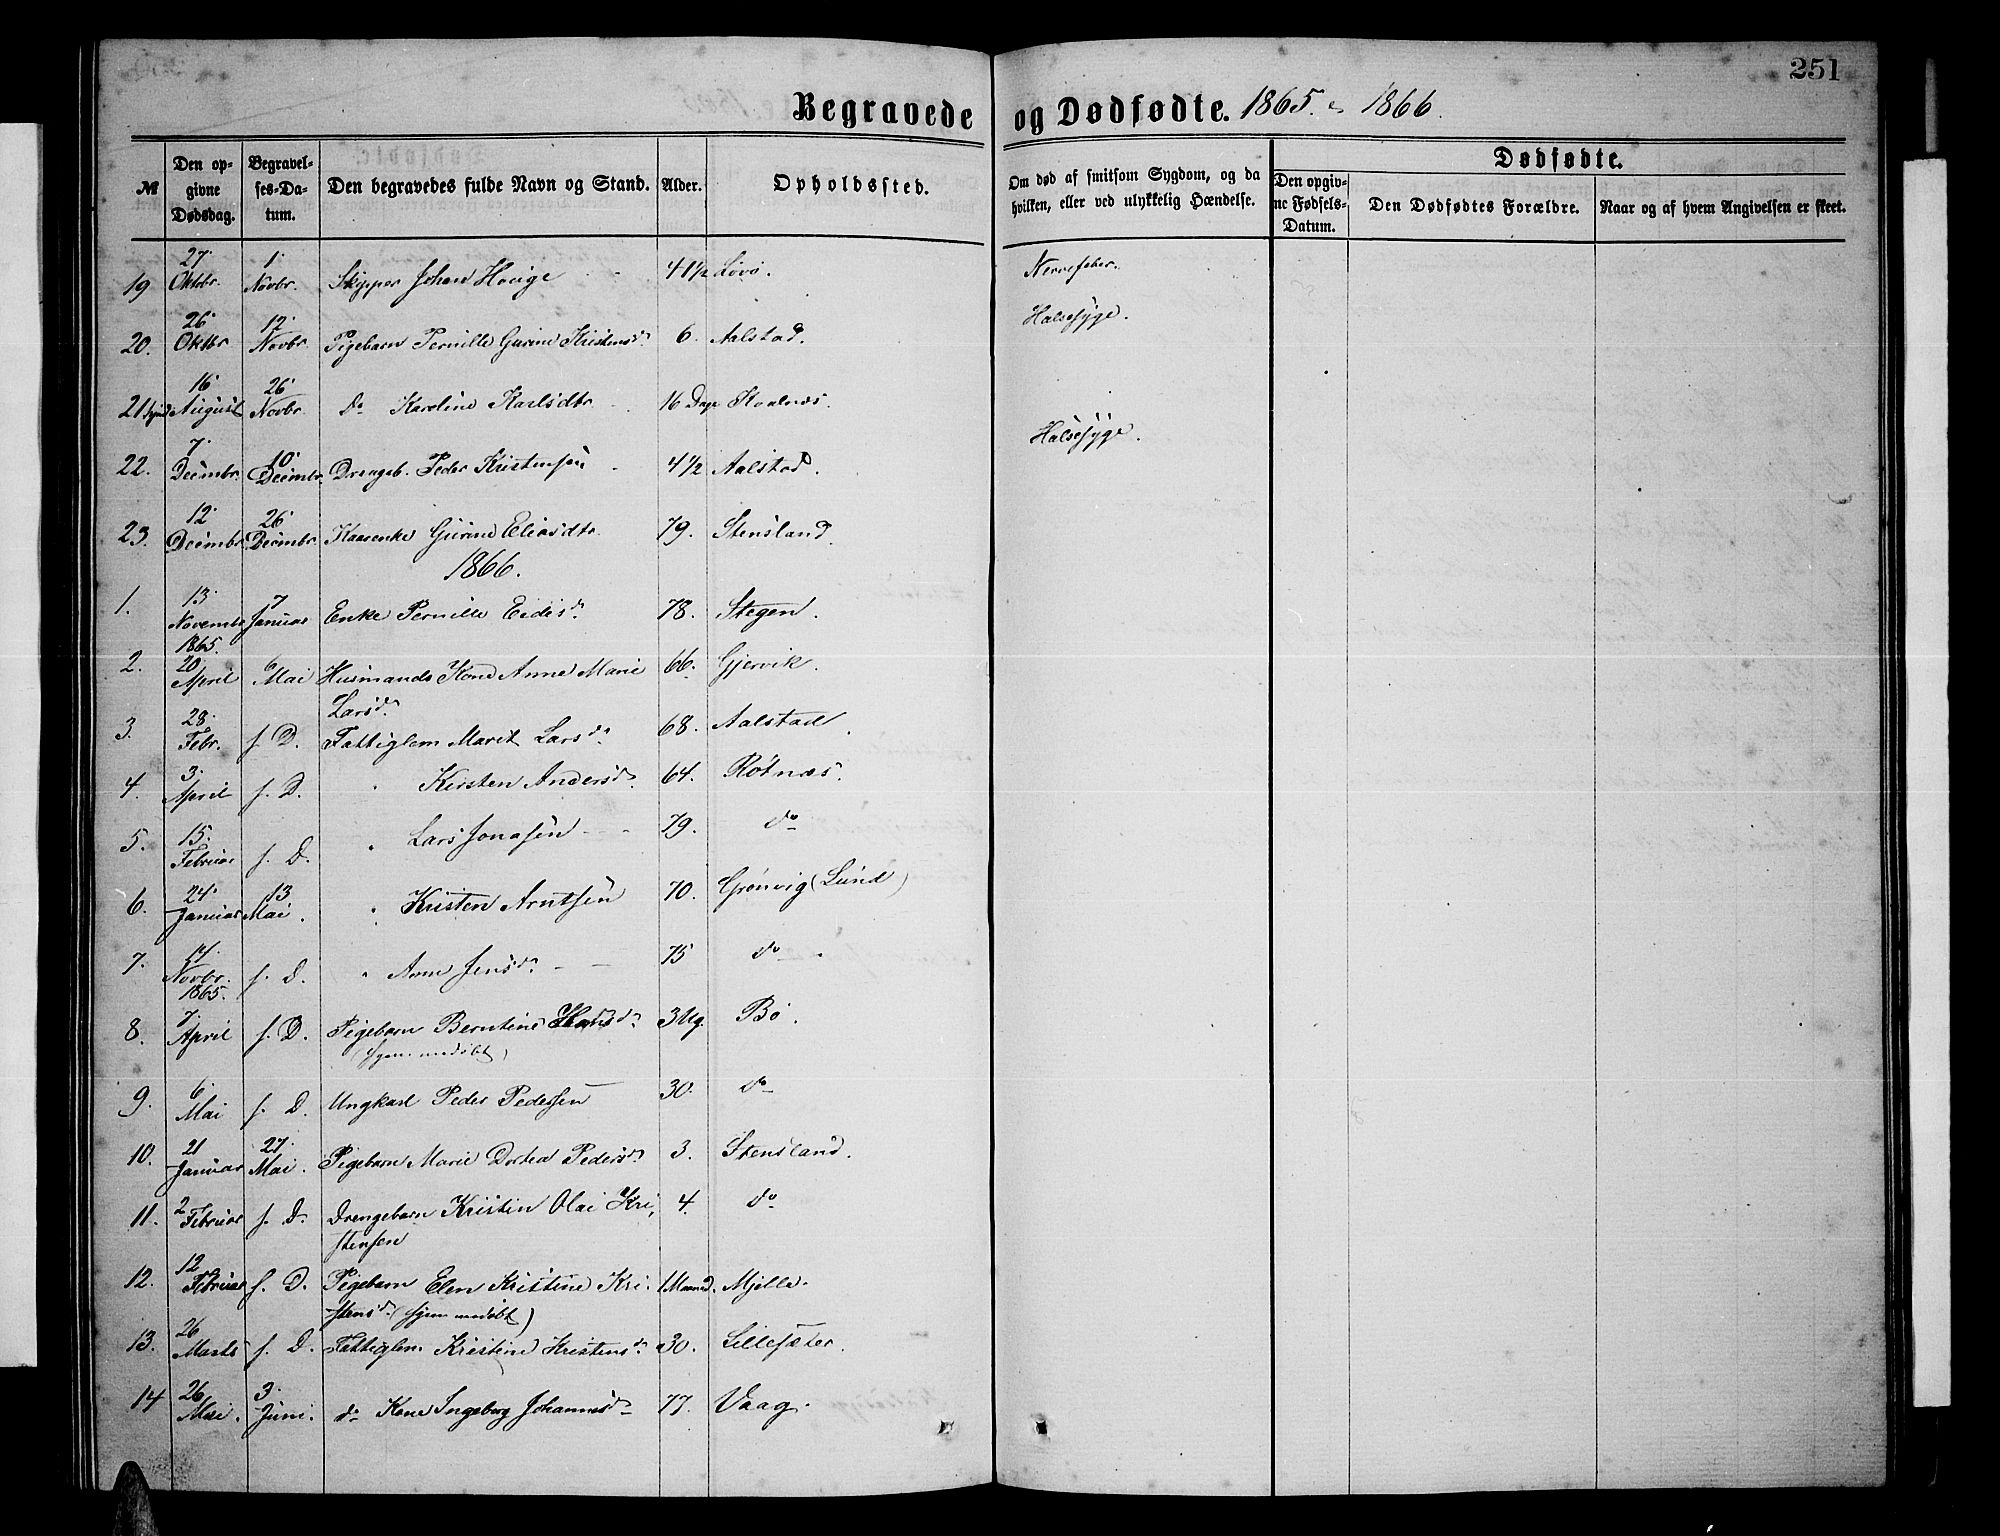 251
Begravede og Dødfødte. 1865. 1866.
№
Den op-
givne
Dødsdag.
Begravel-
ses-Da-
tum.
Den begravedes fulde Navn og Stand.
Alder.
Opholdssted.
Om død af smitsom Sygdom, og da
hvilken, eller ved ulykkelig Hændelse.
Dødfødte.
Den opgiv-
ne Fødsels-
Datum.
Den Dødfødtes Forældre.
Naar og af hvem Angivelsen er skeet.
27 1.
19 Oktbr. Novbr. Skipper Johan Houge 41½ Lövö. Nervefeber.
26 12
20. Oktbr Novbr. Pigebarn Pernille Gurine Kristensd. 6. Aalstad. Halsesyge.
16 26
21 August Novbr. do Karoline Karlsdtr 16 Dage Skaalnæs.
7 10
22. Decembr. Decembr. Drengeb. Peder Kristensen 4½ Aalstad. Halsesyge.
12 26
23. Decembr Decembr. Kaarenke Gurine Eliasdtr 79. Stensland.
1866.
13 7
1. Novembr Januar Enke Pernille Eidisd. 78. Stegen.
1865.
20 6
2. April Mai Husmands Kone Anne Marie 66. Gjervik.
Larsd.
28
3. Febr. s. D. Fattiglem Marit Larsd. 68. Aalstad.
3
4. April s. D. " Kirsten Andersd. 64. Rötnæs.
15.
5. Februar s. D. " Lars Jonasen 79. do
24 13
6. Januar Mai. " Kristen Arntsen 70. Grönvig (Lund)
14
7. Novbr. s. D. " Anne Jensd. 75 do
1865.
7
8. April s. D. Pigebarn Berntine Hansd. 3 Ug. Bö.
(hjemmedöbt)
6
9. Mai s. D. Ungkarl Peder Pedersen 30. do
21 27
10. Januar Mai. Pigebarn Marie Dortea Pedersd. 3. Stensland.
2
11. Februar s. D. Drengebarn Kristin Olai Kri- 4. do
stensen
12
12. Februar s. D. Pigebarn Elen Kristine Kri- 1 Maaned. Mjelle.
stensd. (hjemmedöbt)
26
13. Marts s. D. Fattiglem Kristine Kristensd. 30. Lillesæter.
26 3
14 Mai. Juni. do Kone Ingeborg Johannesd. 77. Vaag.